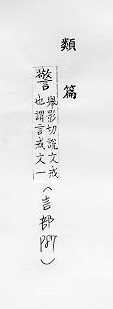 類篇
警舉影切說文戒
也謂言戒文一(言部P87)